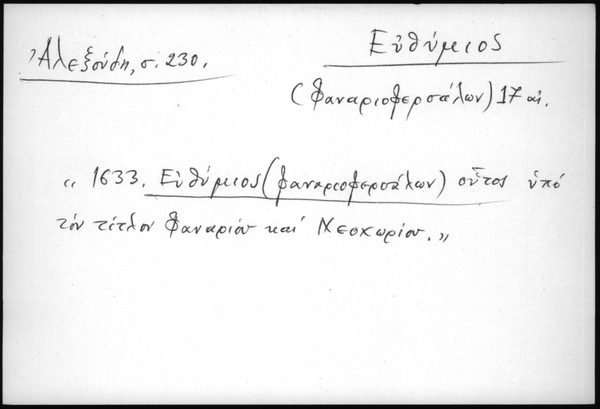 Ἀλεξούδη, σ. 230.
Εὐθύμιος
(Φαναριοφερσάλων) 17 αἰ.
„ 1633. Εὐθύμιος (Φαναριοφερσάλων) οὗτος ὑπό
τόν τίτλον Φαναρίου καί Νεοχωρίου. „